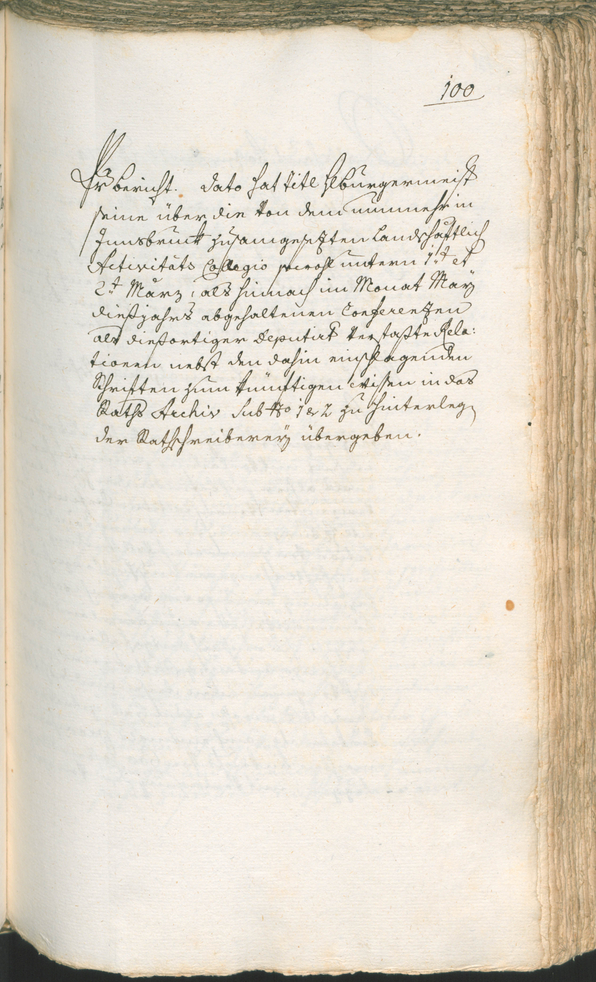 100
Dato hat titl H: Burgermeist
seine über die von dem nunmehr in
Innsbrukh zusamgesezten Landschäftlich
Activitäts Collegio sowohl unterm 1t et
2t März, als hinnach im Monat May
dießjahrs abgehaltenen Conferenzen
als dießortiger Deputirt verfaßte Rela:
tionen nebst den dahin einschlagenden
Schriften zum künftigen wißen in das
Raths Archiv sub No 1 & 2 zu hinterleg
der Rathschreiberey übergeben.